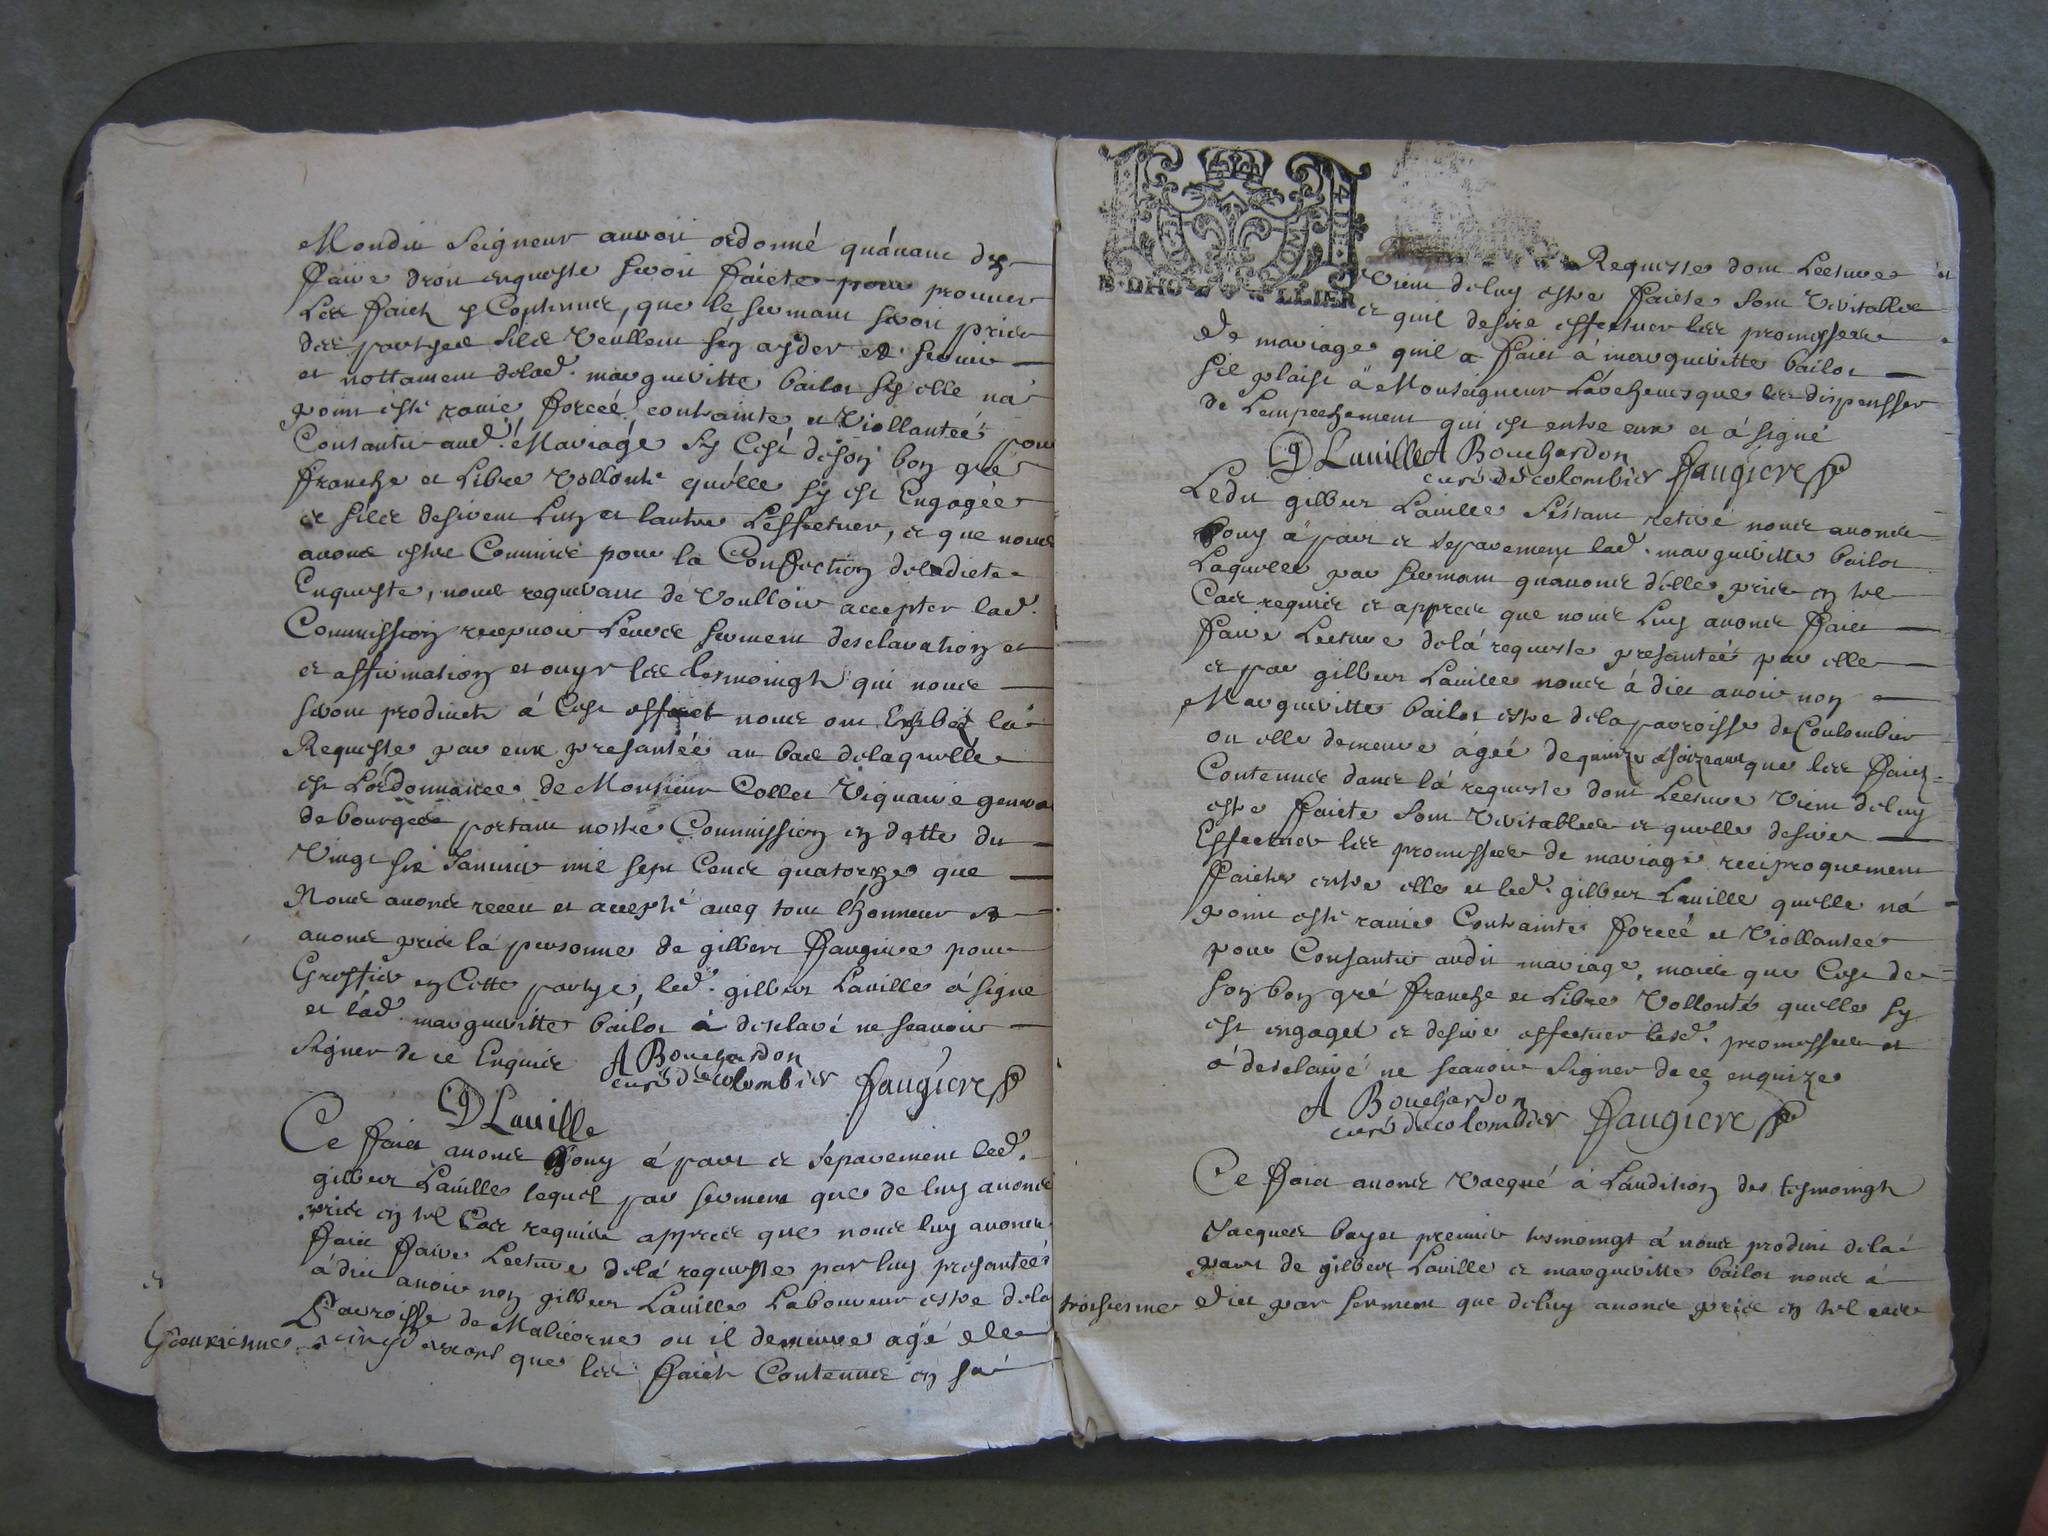 Mondit Seigneur auroit ordonné quávant dy
faire droit enqueste seroit faicte pour prouver
Les faicts y Contenus, que le serment seroit pris
des partyes silz veullent sen ayder et servir
et nottament delad. margueritte bailot sy elle na
point esté ravie forceé contrainte et viollanteé pour
Consantir aud. Mariage sy Cest deson bon gré
franche et Libre vollonté quélle sy est Engagée
et silz desirent Lun et lautre Leffectuer, et que nous
avons estre Commis pour la Confection deladicte
Enqueste, nous requerant de voulloir accepter lad.
Commission recepvoir Leurs serment desclaration et
et affirmation et ouyr les tesmoingts qui nous
seront produicts á Cest effect nous ont Exhibé la
Requeste par eux presantée au bas delaquelle
est Lordonnance de Monsieur Collet viquaire general
de bourges portant nostre Commission en datte du
vingt six Janvier mil sept Cens quatorze que
Nous avons receu et accepté avecq tout lhonneur et
avons pris la personne de gilbert faugire pour
Greffier en Cette partye, led. gilbert Lauille a signe
et lad. marguerite bailot á desclaré ne scavoir
signer de ce Enquis A Bouchardon
curé de colombier faugiere
G Lauille
Ce faict avons ouy á part et séparement led.
gilbert Lauille lequel par serment que de luy avons
pris en tel Cas requis appres que nous luy avons
faict faire Lecture delá requeste par luy presantée
á dict avoir non gilbert Lauille Laboureur estre dela
Parroisse de Malicorne ou il demeure agé de
que les faicts Contenus en sa
Requeste dont Lecture
vient deluy estre faicte sont veritables
et quil desire effectuer les promesses
de mariage quil a faict á marguerite bailot
sil plaist á Monseigneur Lárchevesque les dispensser
de Lempeschement qui est entre eux et á signé
G Lauille A Bouchardon
curé de colombier faugiere
Ledit gilbert Lauille séstant retiré nous avons
ouy á part et séparement lad. marguerite bailot
Laquelle par serment quávons délle pris en tel
Cas requis et appres que nous Luy avons faict
faire Lecture delá requeste presanteé par elle
et par gilbert Lauille nous á dict avoir non
Marguerite bailot estre dela parroisse de Coulombier
ou elle demeure ágeé de quinze á seize ans que les faicts
Contenus dans lá requeste dont Lecture vient deluy
estre faicte sont veritables et quelle desire
Effectuer les promesses de mariage reciproquement
faictes entre elle et led. gilbert Lauille quelle ná
point esté ravie Contrainte forceé et viollanteé
pour Consantir audit mariage, mais que Cest de
son bon gré franche et Libre vollonté quelle sy
est engageé et desire effectuer lesd. promesses et
á desclairé ne scavoir signer de ce enquize
A Bouchardon
curé de colombier faugiere
Ce faict avons vacqué á Láudition des tesmoingts
Jacques bayet premier tesmoingt á nous produict delá
part de gilbert Lauille et marguerite bailot nous á
troisiesme dict par serment que deluy avons pris en tel cas